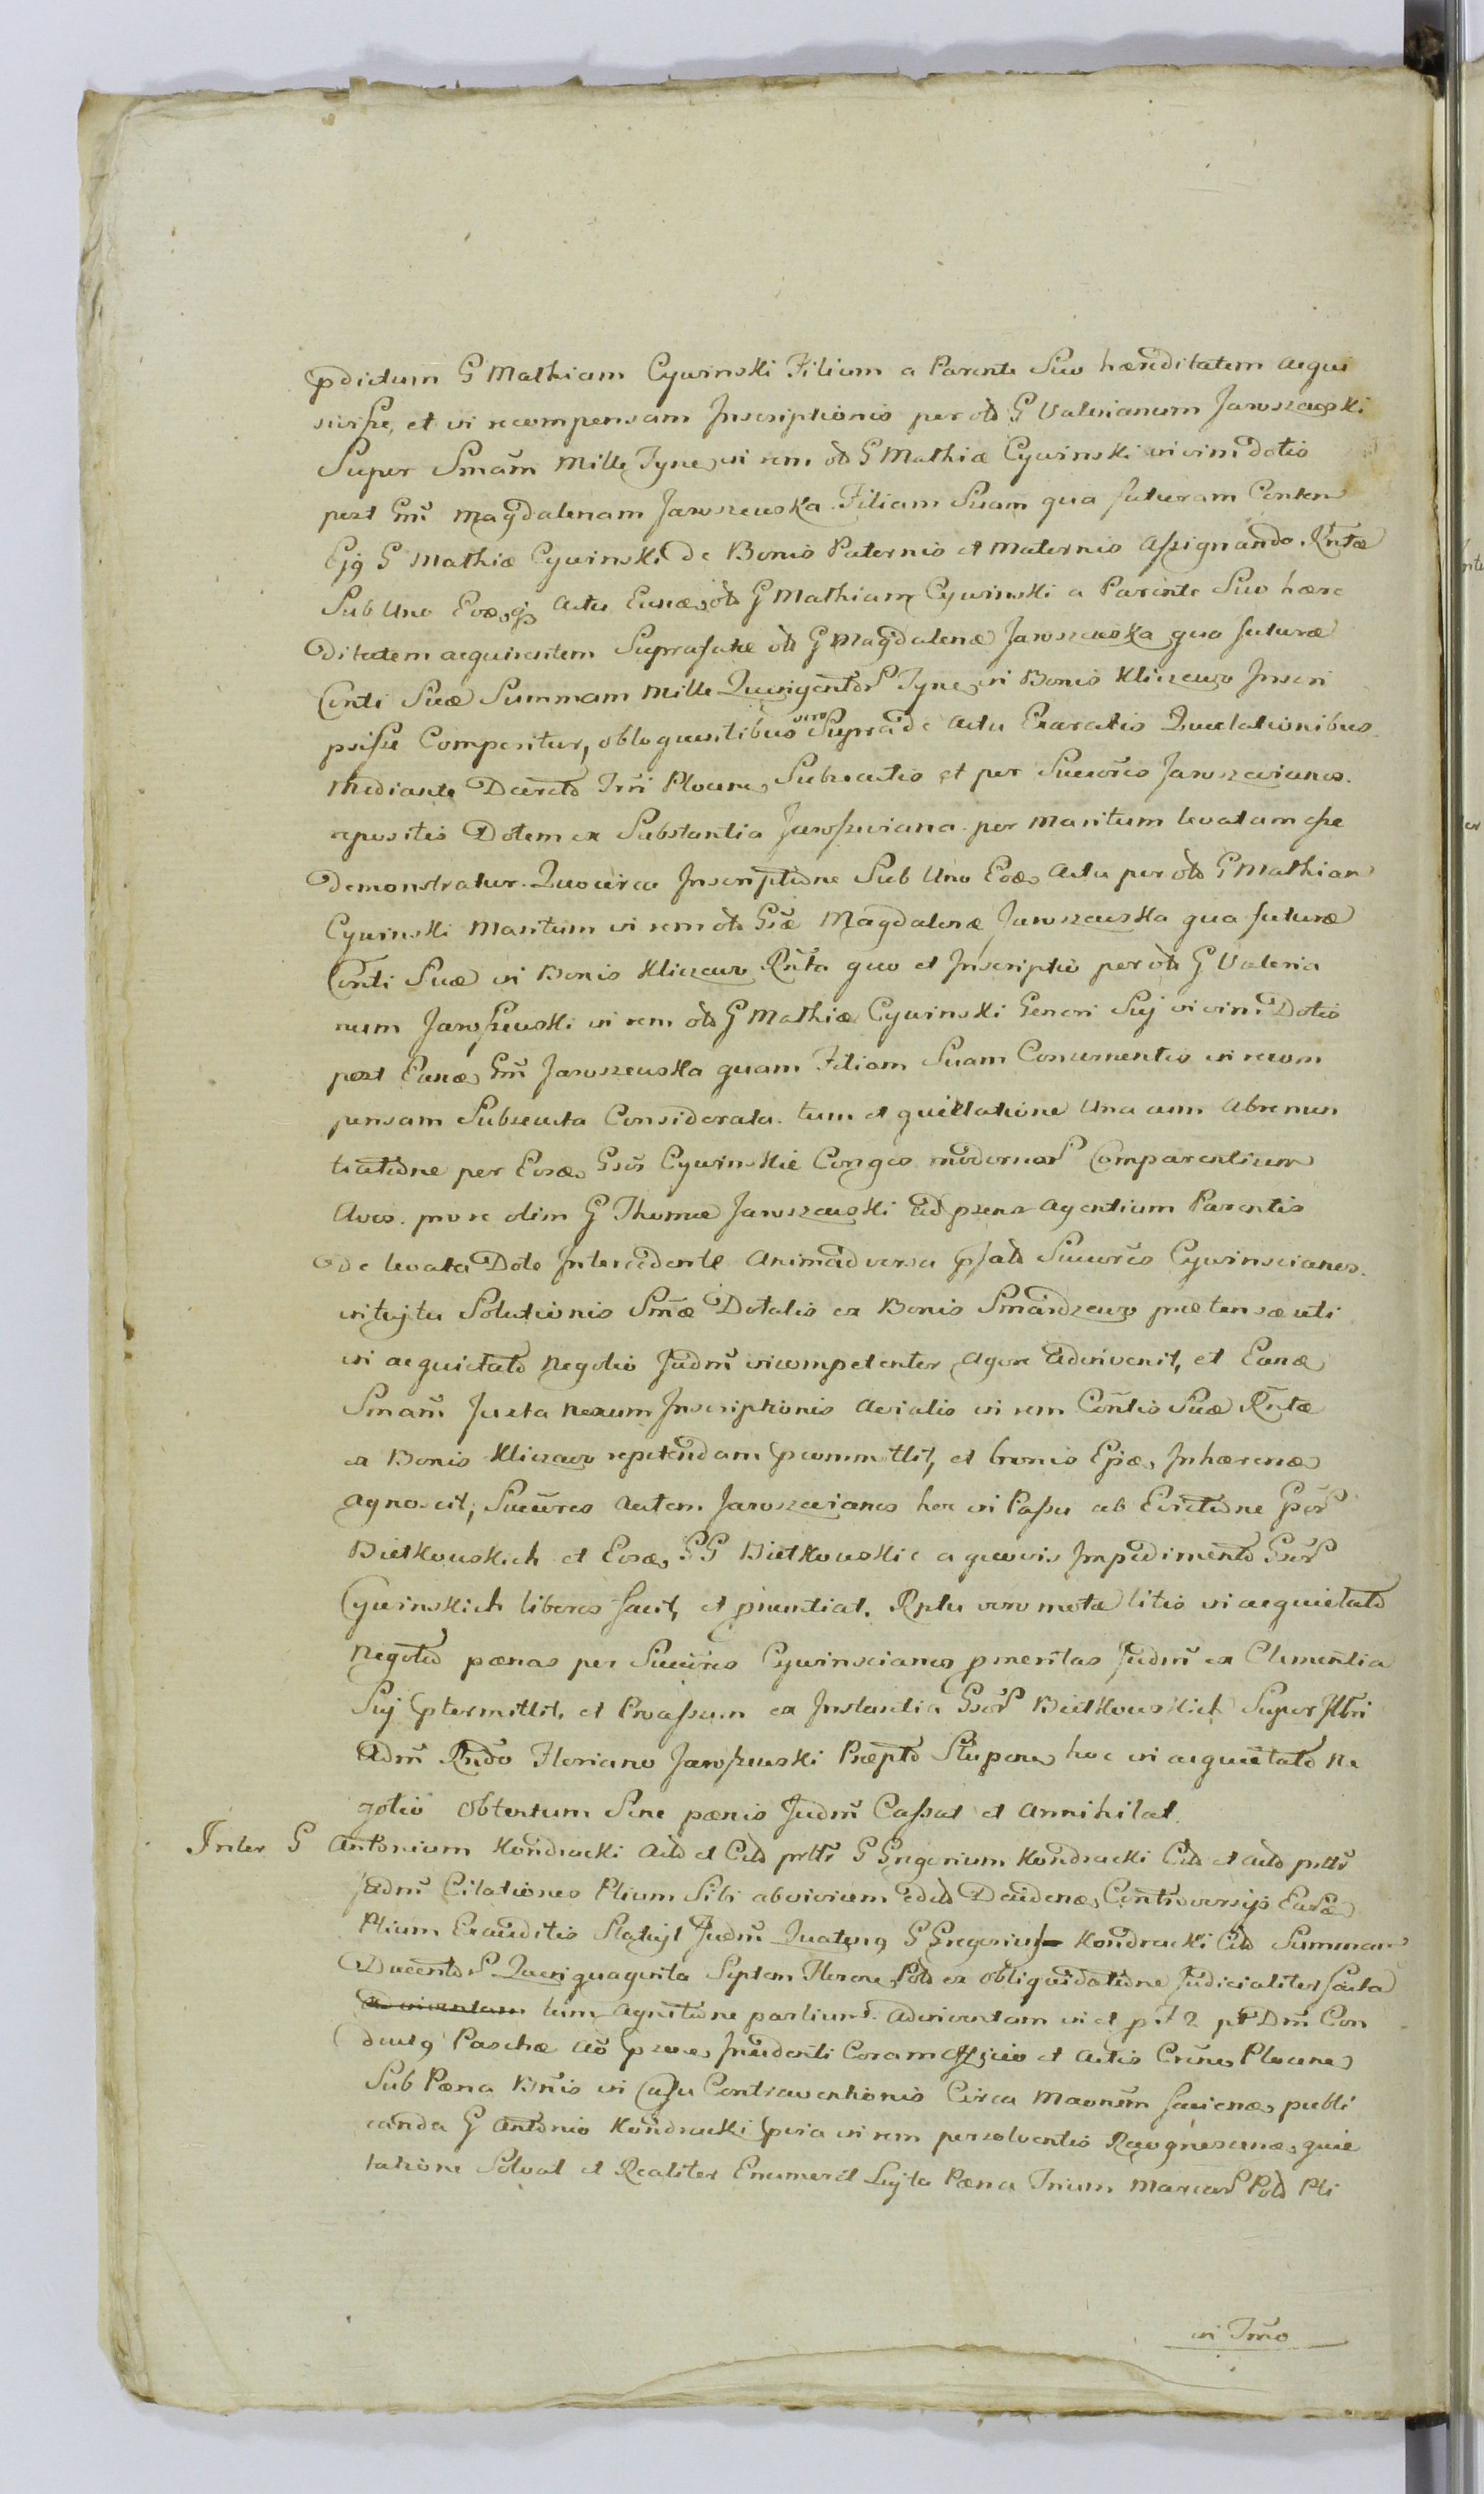 pdictum G Mathiam Cywinski Filium a Parente Suo hæreditatem acqui
sivisse, et in recompensam Inscriptionis per olb G Valerianum Jaroszewski
Super Smam Mille Tyne, in rem olb G Mathiæ Cywinski in vim dotis
post Gm Magdalenam Jaroszewska Filiam Suam qua futuram Conten
Ejq G Mathiæ Cywinski de Bonis Paternis et Maternis Assignando. Rntæ
Sub Uno Eoq actu Eunæ, olb G Mathiam Cywinski a Parente Suo hære
ditatem acquirentem Suprafatæ olb G Magdalenæ Jaroszewska qua futuræ
Conti Suæ Summam Mille Quingentor Tyne, in Bonis Kliczewo Inscri
psisse Comperitur, obloquentibus vero Supra de Actu Exaratis Quietationibus
Mediante Decreto Trri Plocen, Subsecutis et per Succres Jaroszevianos
repositis Dotem ex Substantia Jaroszeviana per Maritum levatam esse
Demonstratur. Quocirca Inscriptione Sub Uno Eoq Actu per olb G Mathiam
Cywinski Maritum in rem olb Gsæ Magdalenæ Jaroszewska qua futuræ
Conti Suæ in Bonis Kliczewo Rnta quo et Inscriptio per olb G Valeria
num Jaroszewski in rem olb G Mathiæ Cywinski Generi Sui in vim Dotis
post Eunæ, Gm Jaroszewska quam Filiam Suam Concumentis in recom
pensam Subsecuta Considerata. tum et quietatione Una cum Abrenun
tiatione per Eosæ, Gsos Cywinskie Conges modernor Comparentium
Avos. pro re olim G Thomæ Jaroszewski ad præns Agentium Parentis
de levata Dote Intercedente Animadversa pfatd Succres Cywinscianos
intuitu Solutionis Smæ Dotalis ex Bonis Smardzewo prætensæ uti
in acquietato Negotio Judm incompetenter Agere Adinvenit, et Eanæ
Smam Juxta Nexum Inscriptionis Avialis in rem Contis Suæ Rntæ
ex Bonis Kliczewo repetendam pcommittit, et bonis Epiæ, Inhærenæ
Agnoscit; Succres Autem Jaroszevianos hoc in Passu ab Evictione Gsor
Bietkowskich et Eosæ, GG Bietkowskie a quovis Impedimento Gsor
Cywinskich liberos facit, et pnuntiat. Rptu vero motæ litis in acquietato
Negotio pœnas per Succres Cywinscianos pmeritas Judm ex Clementia
Sui ptermittit, et Processum ex Instantia Gsor Bietkowskich Super Illri
Adm Rndo Floriano Jaroszewski Præpto Slupens, hoc in acquietato Ne
gotio Obtentum Sine pœnis Judm Cassat et Annihilat.
Inter G Antonium Kondracki Actb et Citb prtte G Gregorium Kondracki Citb et actb prtte
Judm Citationes Ptium Sibi abinvicem edito Decidenæ, Controversijs Earæ
Ptium Exauditis Statuit Judm Quatenq G Gregorius Kondracki Citb Summam
Ducentor Quinquaginta Septem Floren, Pold ex obliquidatione Judicialiter facta
ad inventam tum Agnitione partium. Adinventam in et p. F 2 pt Dm Con
ductq Paschæ Ao pren, Incidenti Coram Officio et Actis Crnes, Plocene,
Sub Pæna Bnis in Casu Contraventionis Circa Maonsm facienæ, publi
canda G Antonio Kondracki pvia in rem persolventis Recognoscenæ, quie
tatione Solvat et Realiter Enumeret Luita Pæna Trium Marcar Pold Pti
in Trmo